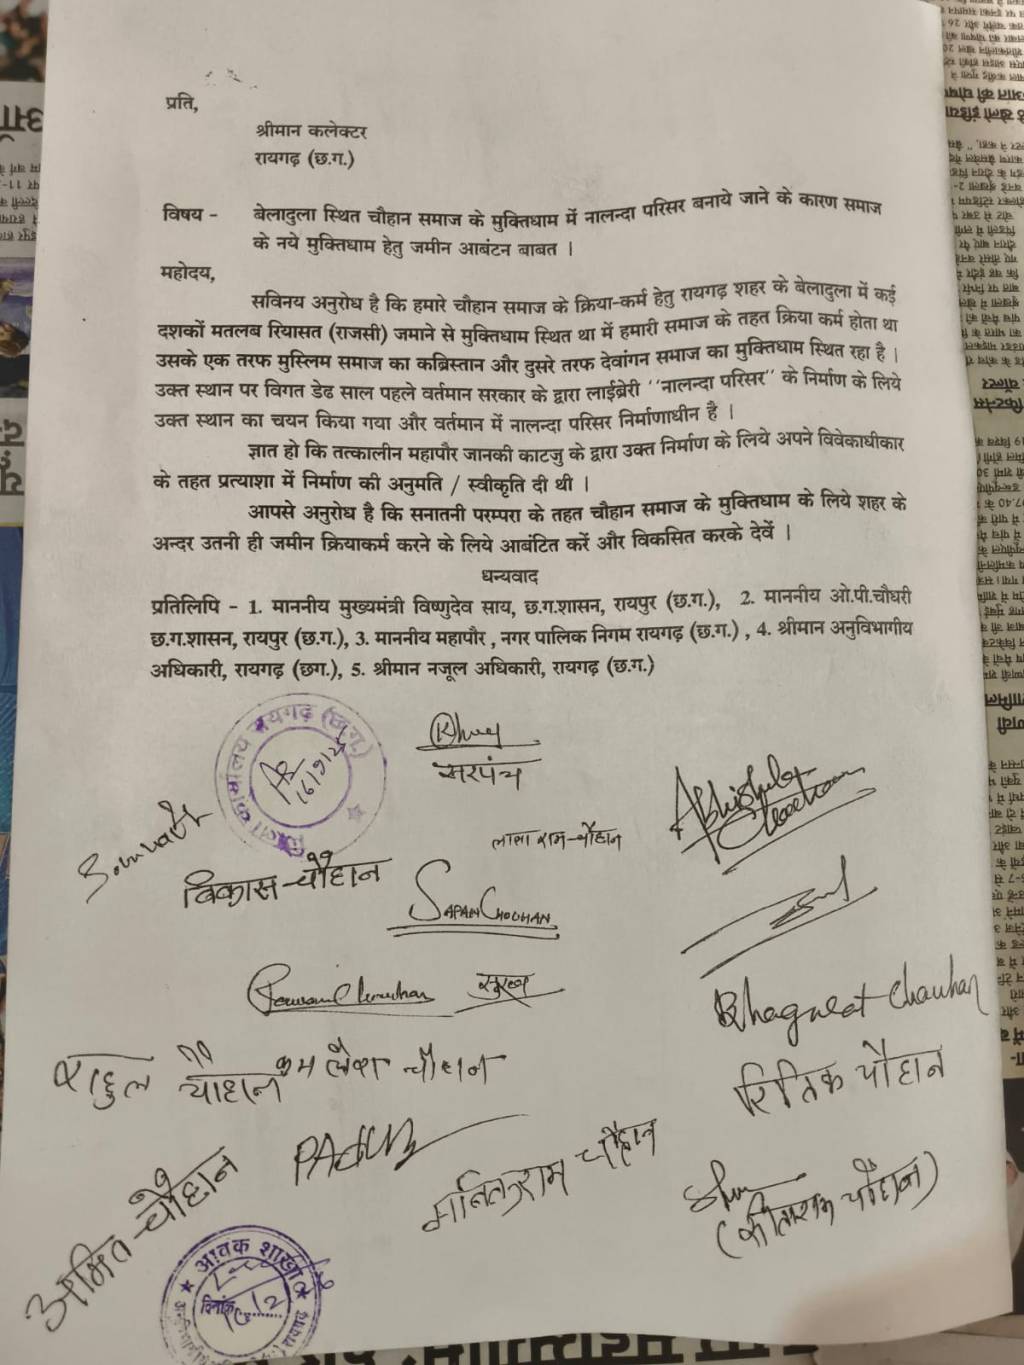 प्रति,
श्रीमान कलेक्टर
रायगढ़ (छ.ग.)
विषय - बेलादुला स्थित चौहान समाज के मुक्तिधाम में नालन्दा परिसर बनाये जाने के कारण समाज
के नये मुक्तिधाम हेतु जमीन आबंटन बाबत ।
महोदय,
सविनय अनुरोध है कि हमारे चौहान समाज के क्रिया-कर्म हेतु रायगढ़ शहर के बेलादुला में कई
दशकों मतलब रियासत (राजसी) जमाने से मुक्तिधाम स्थित था में हमारी समाज के तहत क्रिया कर्म होता था
उसके एक तरफ मुस्लिम समाज का कब्रिस्तान और दुसरे तरफ देवांगन समाज का मुक्तिधाम स्थित रहा है ।
उक्त स्थान पर विगत डेढ साल पहले वर्तमान सरकार के द्वारा लाईब्रेरी ''नालन्दा परिसर'' के निर्माण के लिये
उक्त स्थान का चयन किया गया और वर्तमान में नालन्दा परिसर निर्माणाधीन है ।
ज्ञात हो कि तत्कालीन महापौर जानकी काटजु के द्वारा उक्त निर्माण के लिये अपने विवेकाधीकार
के तहत प्रत्याशा में निर्माण की अनुमति / स्वीकृति दी थी ।
आपसे अनुरोध है कि सनातनी परम्परा के तहत चौहान समाज के मुक्तिधाम के लिये शहर के
अन्दर उतनी ही जमीन क्रियाकर्म करने के लिये आबंटित करें और विकसित करके देवें ।
धन्यवाद
प्रतिलिपि - 1. माननीय मुख्यमंत्री विष्णुदेव साय, छ.ग.शासन, रायपुर (छ.ग.), 2. माननीय ओ.पी.चौधरी
छ.ग.शासन, रायपुर (छ.ग.), 3. माननीय महापौर , नगर पालिक निगम रायगढ़ (छ.ग.) , 4. श्रीमान अनुविभागीय
अधिकारी, रायगढ़ (छग.), 5. श्रीमान नजूल अधिकारी, रायगढ़ (छ.ग.)
कार्यालय रायगढ़ (छ.ग.)
सरपंच
Abhishek Chouhan
विकास चौहान
SAPAN CHOUHAN
Bhagwat Chauhan
राहुल चौहान
कमलेश चौहान
रितिक चौहान
अमित चौहान
चौहान
आवक शाखा
दिनांक